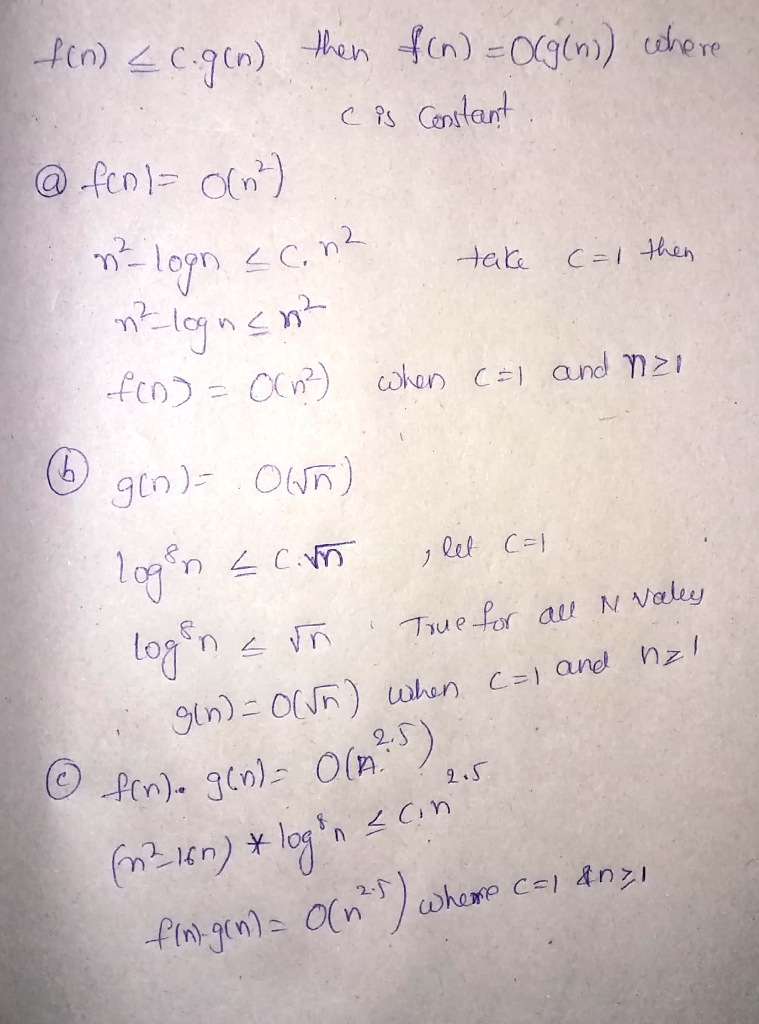 f(n) ≤ c.g(n) then f(n) = O(g(n)) where
c is Constant.
ⓐ f(n) = O(n²)
n² - logn ≤ C. n² take c=1 then
n² - log n ≤ n²
f(n) = O(n²) when c=1 and n≥1
ⓑ g(n) = O(√n)
log⁸n ≤ C.√n , let C=1
log⁸n ≤ √n True for all N Valey
g(n) = O(√n) when c=1 and n≥1
ⓒ f(n). g(n) = O(n^2.5)
(n² - 16n) * log⁸n ≤ c.n^2.5
f(n).g(n) = O(n^2.5) where c=1 & n≥1